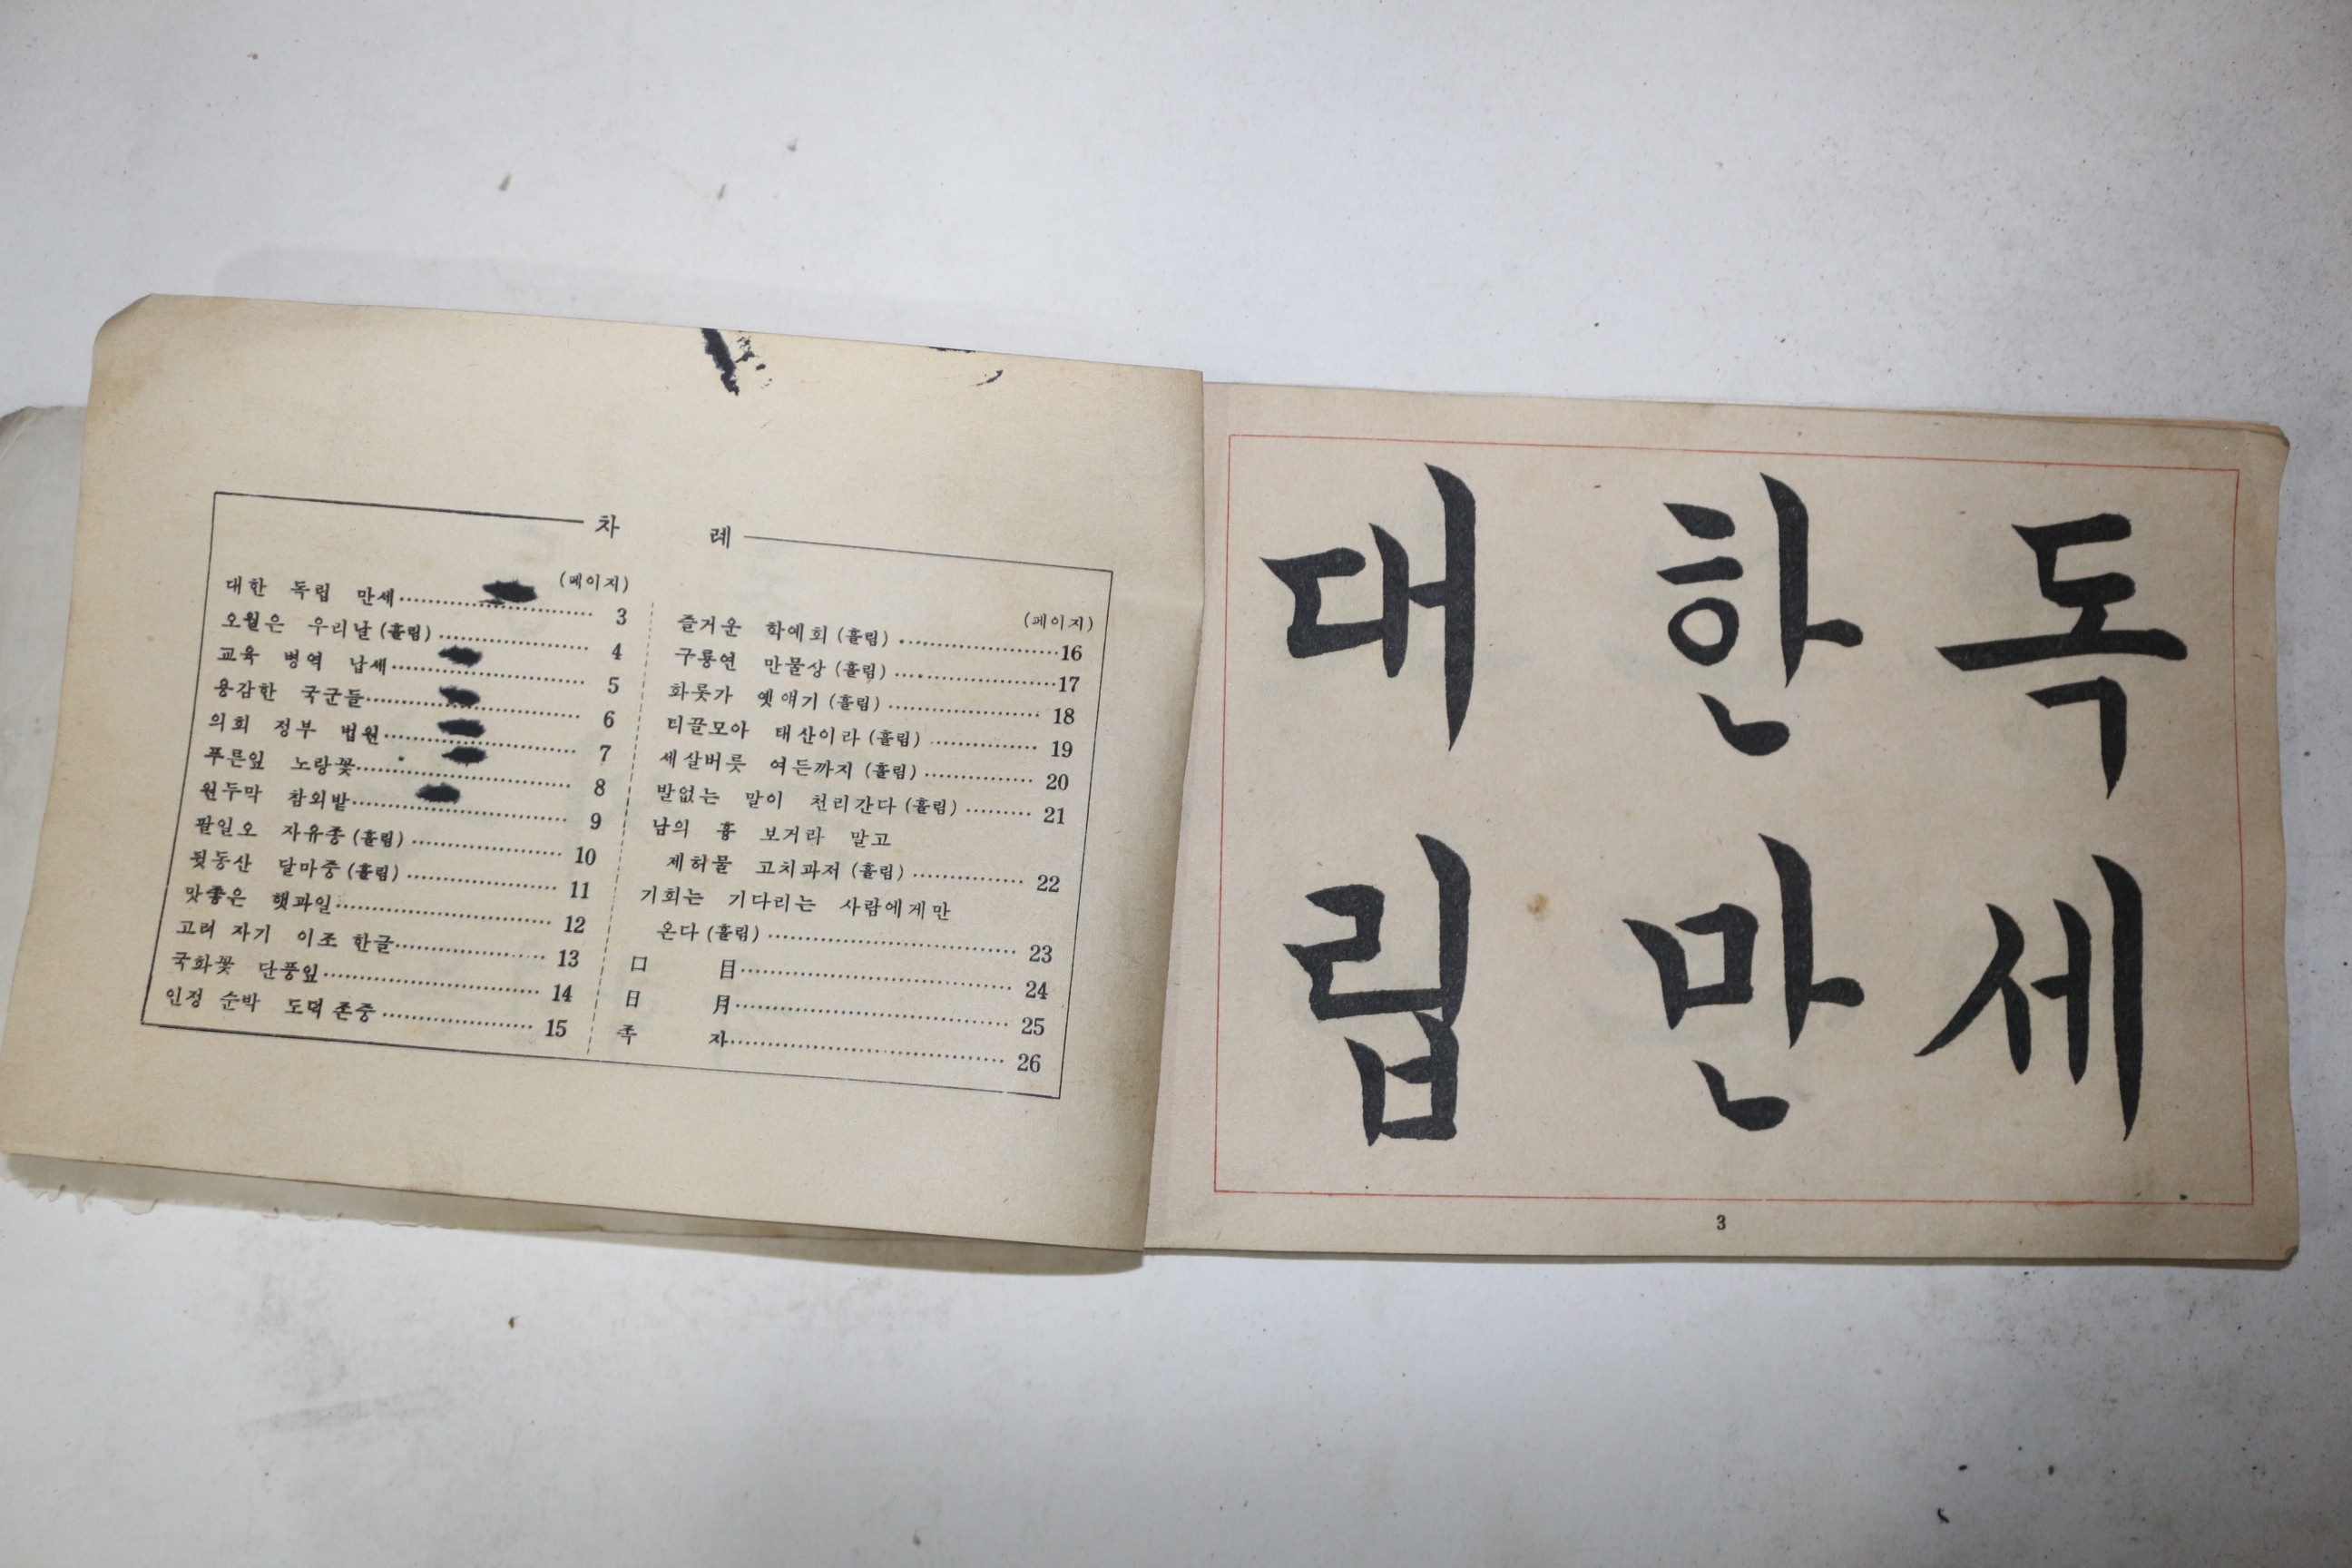 차 례
(페이지)
대한 독립 만세 3
오월은 우리날(흘림) 4
교육 병역 납세 5
용감한 국군들 6
의회 정부 법원 7
푸른잎 노랑꽃 8
원두막 참외밭 9
팔일오 자유종(흘림) 10
뒷동산 달마중(흘림) 11
맛좋은 햇과일 12
고려 자기 이조 한글 13
국화꽃 단풍잎 14
인정 순박 도덕 존중 15
(페이지)
즐거운 학예회(흘림) 16
구룡연 만물상(흘림) 17
화롯가 옛얘기(흘림) 18
티끌모아 태산이라(흘림) 19
세살버릇 여든까지(흘림) 20
발없는 말이 천리간다(흘림) 21
남의 흉 보거라 말고
제허물 고치과저(흘림) 22
기회는 기다리는 사람에게만
온다(흘림) 23
口 目 24
日 月 25
족 자 26
대한독
립만세
3